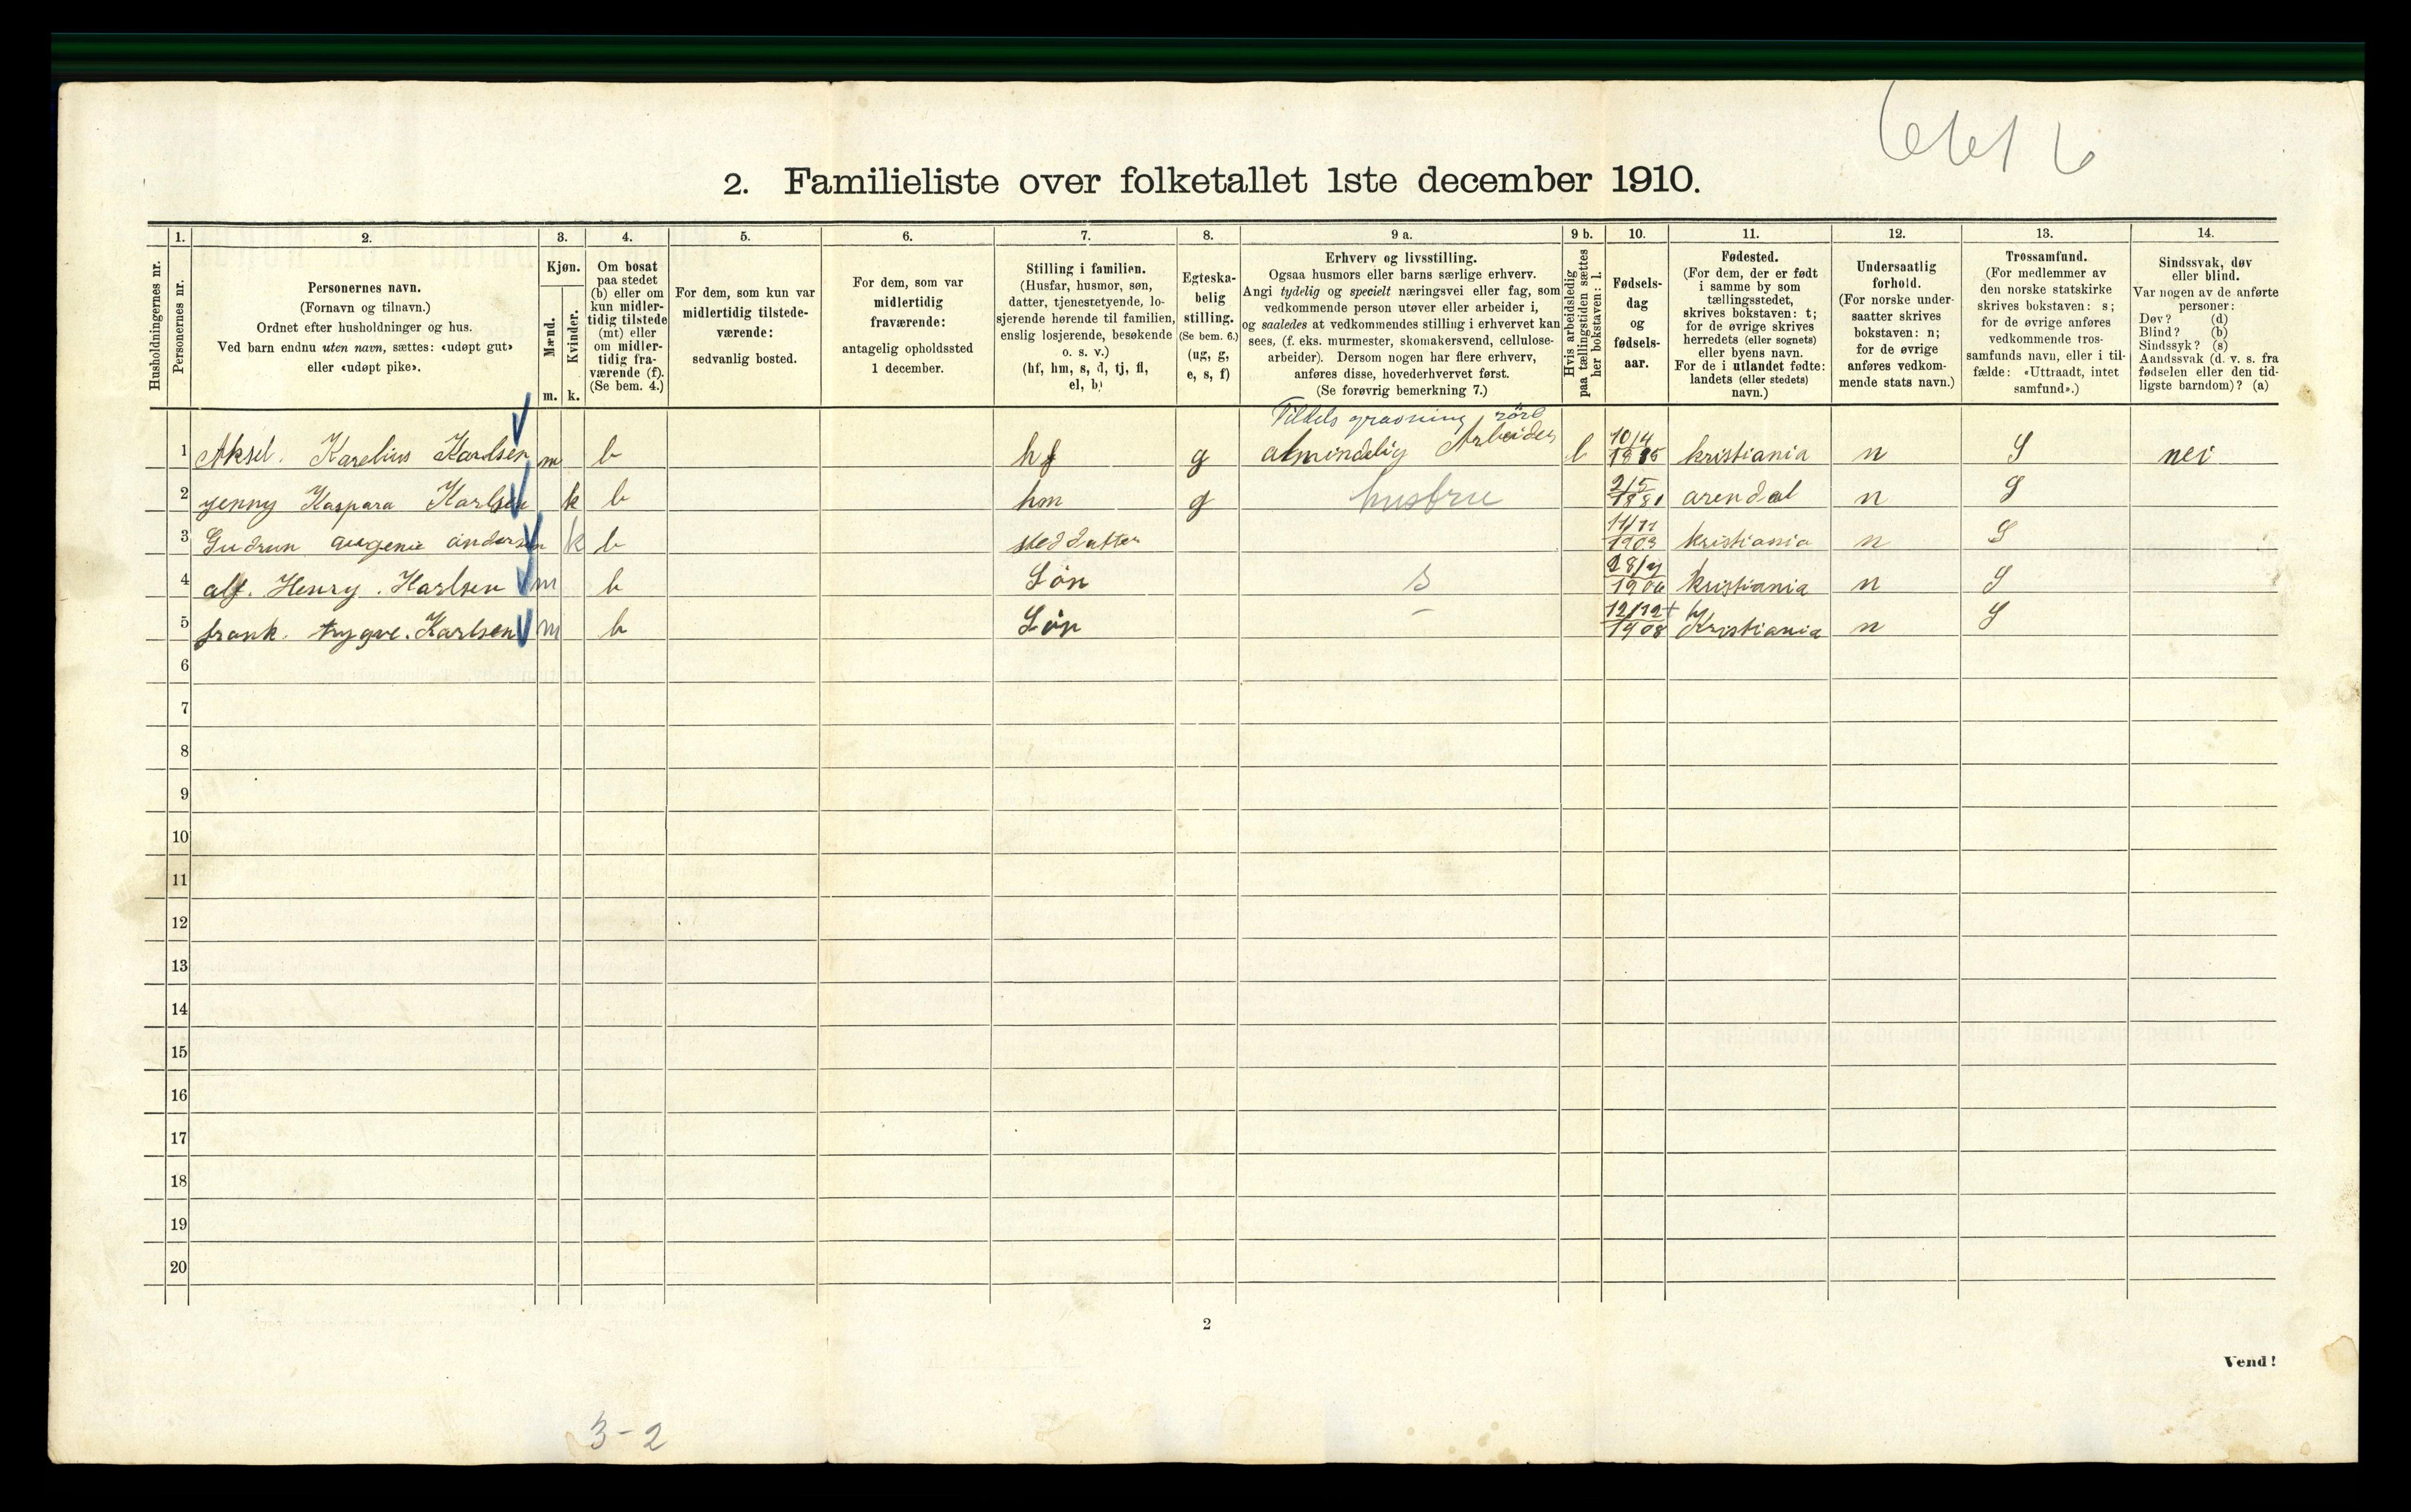 2. Familieliste over folketallet 1ste december 1910.
Husholdningernes nr.
1.
Personernes nr.
2.
Personernes navn.
(Fornavn og tilnavn.)
Ordnet efter husholdninger og hus.
Ved barn endnu uten navn, sættes: «udøpt gut»
eller «udøpt pike».
3.
Kjøn.
Mænd.
Kvinder.
m. k.
4.
Om bosat
paa stedet
(b) eller om
kun midler-
tidig tilstede
(mt) eller
om midler-
tidig fra-
værende (f).
(Se bem. 4.)
5.
For dem, som kun var
midlertidig tilstede-
værende:
sedvanlig bosted.
6.
For dem, som var
midlertidig
fraværende:
antagelig opholdssted
1 december.
7.
Stilling i familien.
(Husfar, husmor, søn,
datter, tjenestetyende, lo-
sjerende hørende til familien,
enslig losjerende, besøkende
o. s. v.)
(hf, hm, s, d, tj, fl,
el, b)
8.
Egteska-
belig
stilling.
(Se bem. 6.)
(ug, g,
e, s, f)
9 a.
Erhverv og livsstilling.
Ogsaa husmors eller barns særlige erhverv.
Angi tydelig og specielt næringsvei eller fag, som
vedkommende person utøver eller arbeider i,
og saaledes at vedkommendes stilling i erhvervet kan
sees, (f. eks. murmester, skomakersvend, cellulose-
arbeider). Dersom nogen har flere erhverv,
anføres disse, hovederhvervet først.
(Se forøvrig bemerkning 7.)
9 b.
Hvis arbeidsledig
paa tællingstiden sættes
her bokstaven: l.
10.
Fødsels-
dag
og
fødsels-
aar.
11.
Fødested.
(For dem, der er født
i samme by som
tællingsstedet,
skrives bokstaven: t;
for de øvrige skrives
herredets (eller sognets)
eller byens navn.
For de i utlandet fødte:
landets (eller stedets)
navn.)
12.
Undersaatlig
forhold.
(For norske under-
saatter skrives
bokstaven: n;
for de øvrige
anføres vedkom-
mende stats navn.)
13.
Trossamfund.
(For medlemmer av
den norske statskirke
skrives bokstaven: s;
for de øvrige anføres
vedkommende tros-
samfunds navn, eller i til-
fælde: «Uttraadt, intet
samfund».)
14.
Sindssvak, døv
eller blind.
Var nogen av de anførte
personer:
Døv? (d)
Blind? (b)
Sindssyk? (s)
Aandssvak (d. v. s. fra
fødselen eller den tid-
ligste barndom)? (a)
Tildels gravning
1 Aksel. Karelius Karlsen m b hf g almindelig Arbeider l 10/4 kristiania n S nei
2 yenny Kaspara Karlsen k b hm g hustru 2/5 1881 arendal n S
3 Gudrun augenie andersen k b steddatter 11/11 1903 kristiania n S
4 alf. Henry. Karlsen m b Søn s 1906 kristiania n S
5 frank. trygve. Karlsen m b Søn - 12/12 1908 Kristiania n S
6
7
8
9
10
11
12
13
14
15
16
17
18
19
20
2
Vend!
3-2